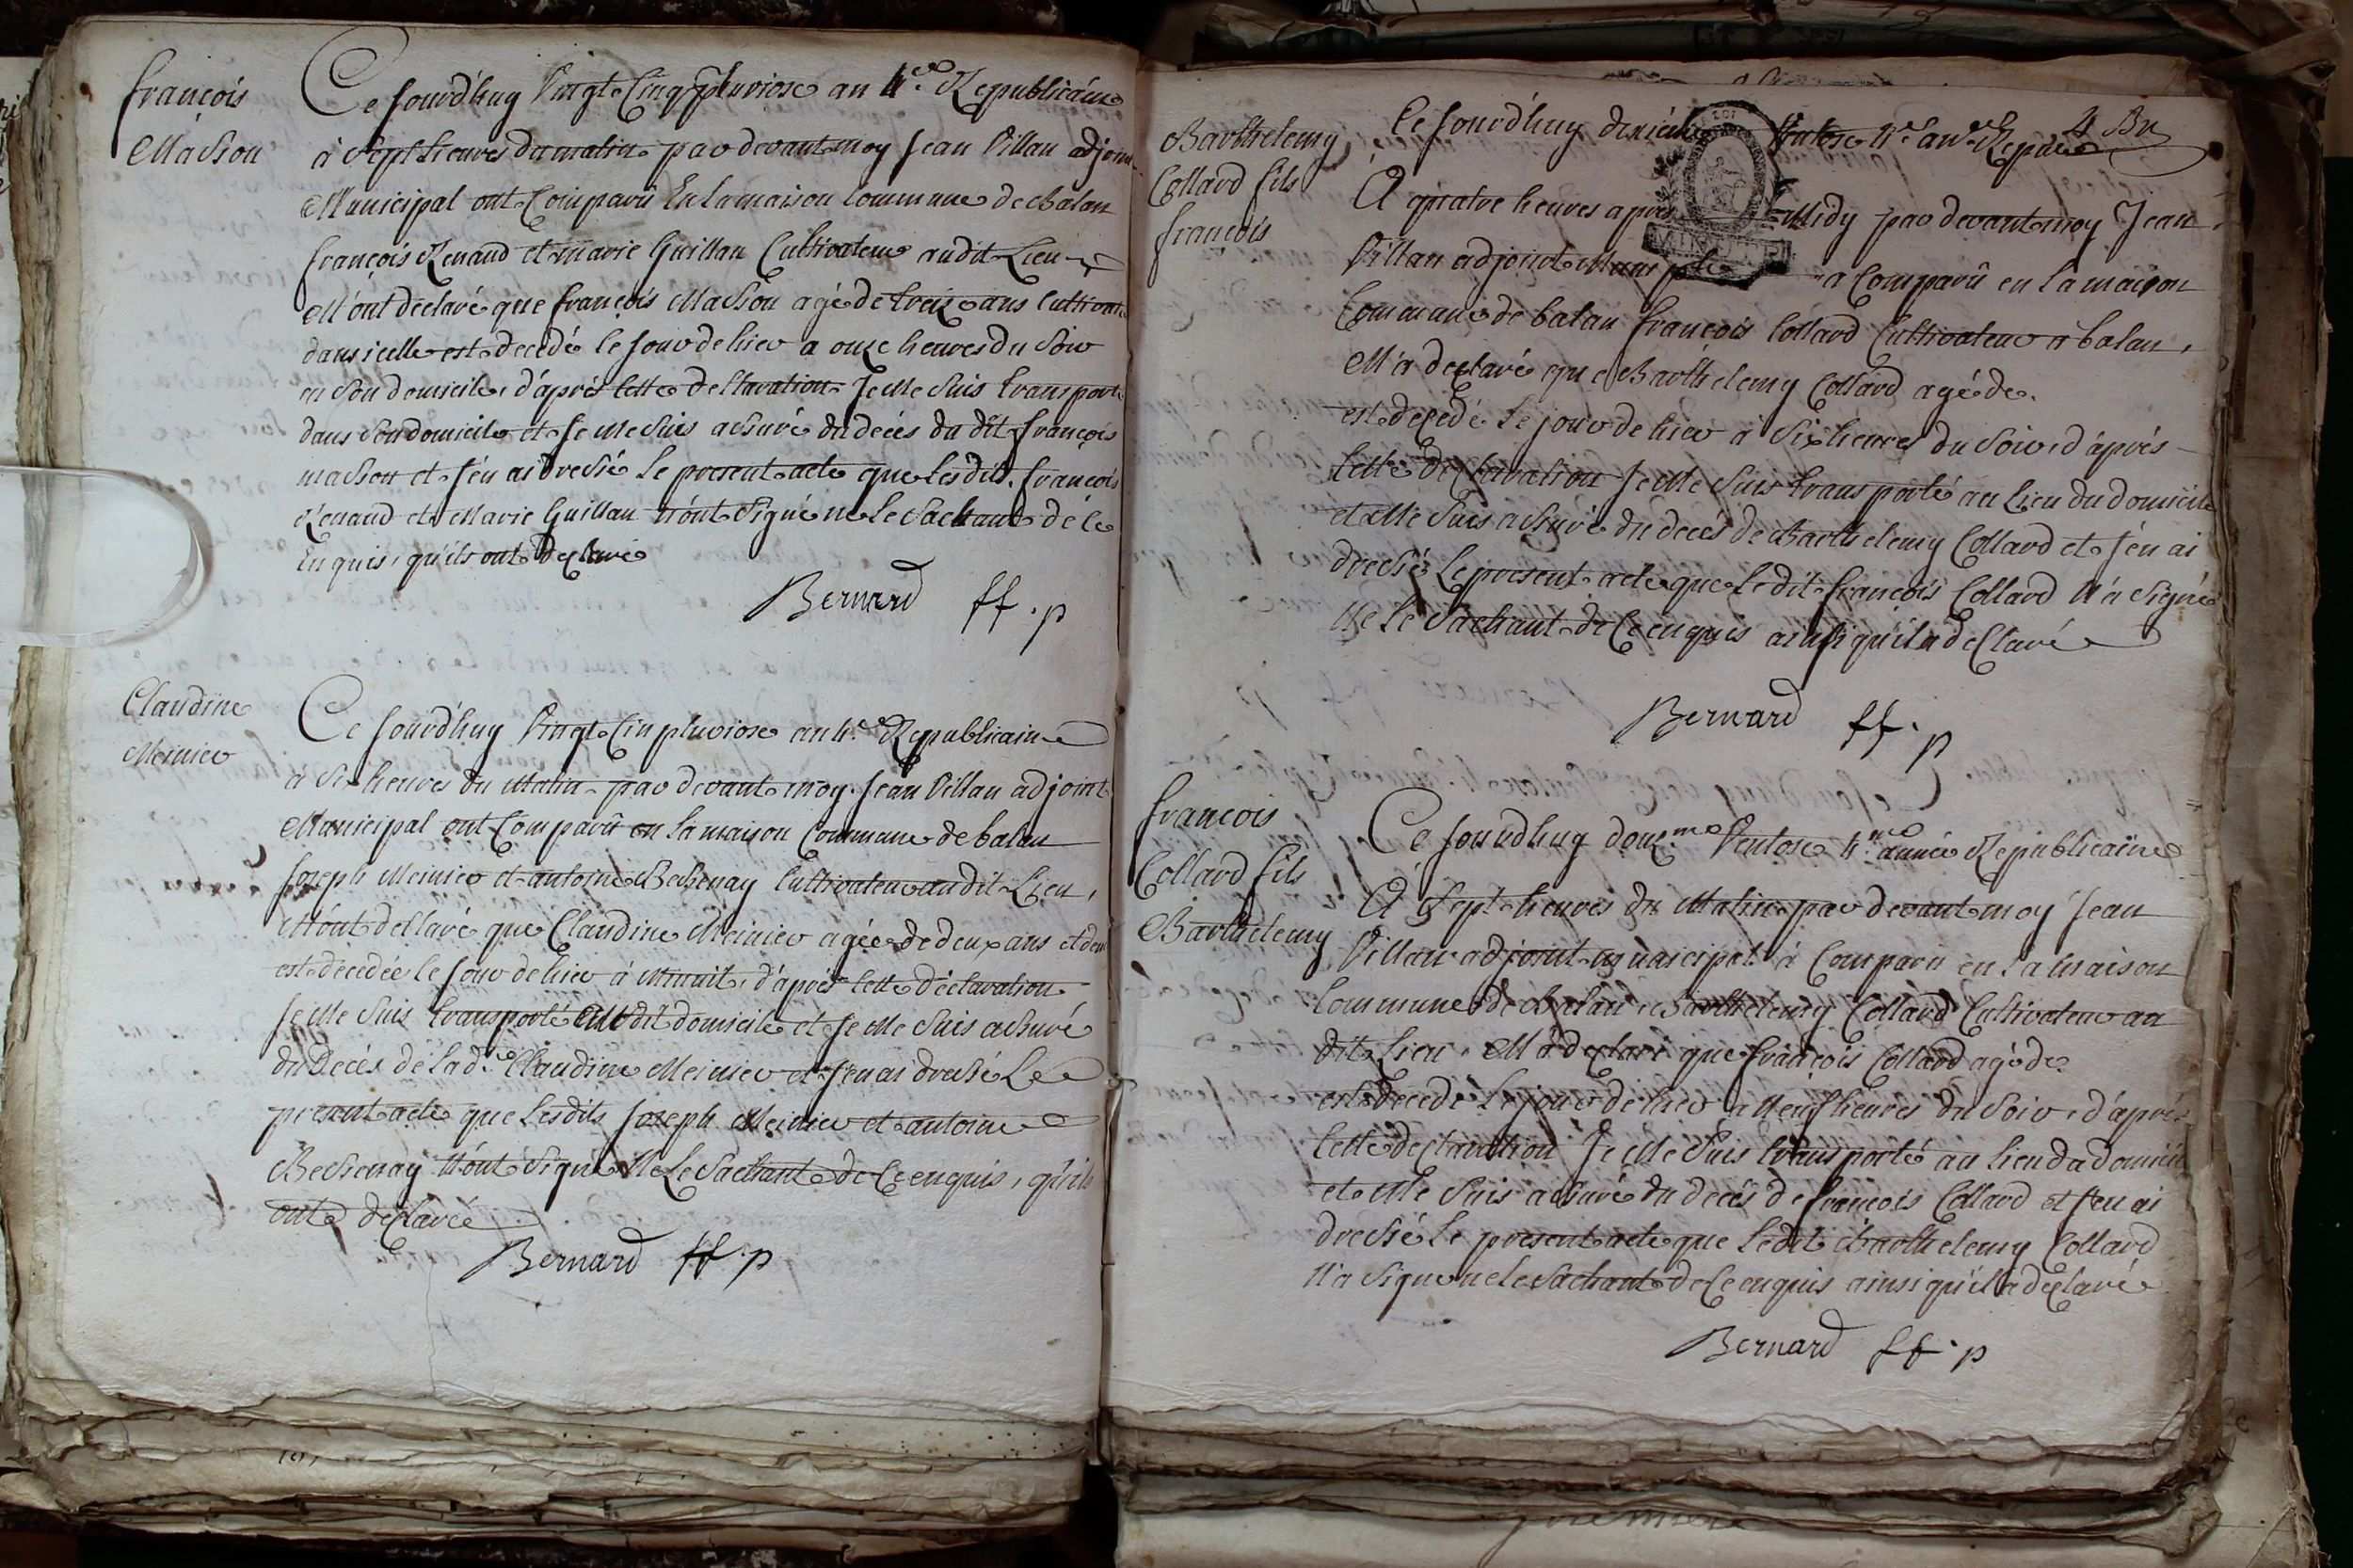 françois
Masson
Ce jourd'huy Vingt Cinq pluviose an 4.e Republicaine
à Sept heures du matin par devant moy Jean Villan adjoint
Municipal ont Comparû En la maison Commune de balan
françois Renaud et marie Guillan Cultivateur audit Lieu
M'ont declaré que françois Masson agé de treize ans Cultivat.
dans icelle est decedé le jour de hier a onze heures du Soir
en Son domicile, d'aprés Cette declaration Je Me Suis transporté
dans Son domicile et Je Me Suis assuré du decés du dit françois
masson et J'en ai dressé Le present acte que Lesdits françois
Renaud et Marie Guillan N'ont Signé ne Le Sachant dé ce
Enquis, qu'ils ont declaré
Bernard ff. p
Claudine
Meinier
Ce Jourd'huy Vingt Cin pluviose an 4.e Republicaine
à Six heures du Matin par devant moy Jean Villan adjoint
Municipal ont Comparû en La maison Commune de balan
Joseph Meinier et antoine Bessenay Cultivateur audit Lieu,
M'ont declaré que Claudine Meinier agée de deux ans et demi
est decedée le jour de hier à Minuit, d'aprés Cette déclaration
Je Me Suis transporté audit domicile et Je Me Suis assuré
du Decés de lad.e Claudine Meinier et J'en ai dressé Le
present acte que Lesdits Joseph Meinier et antoine
Bessenay N'ont Signé Ne Le Sachant de Ce enquis, qu'ils
ont declaré
Bernard ff. p
4 Bn
Barthelemy
Collard fils
françois
Ce jourd'huy dixiéme Ventose 4.e an.e Repu.e
A quatre heures aprés Midy par devant moy Jean
Villan adjoint Municipal a Comparû en La maison
Commune de balan françois Collard Cultivateur a balan,
M'a declaré que Barthelemy Collard agé de.
est decedé Le jour de hier à Six heures du Soir, d'aprés
Cette declaration Je Me Suis transporté au Lieu du domicile
et Me Suis assuré du decés de Barthelemy Collard et J'en ai
dressé Le present acte que Le dit françois Collard N'a Signé
Ne Le Sachant de Ce enquis ainsi qu'il a declaré
Bernard ff. p
françois
Collard fils
Barthelemy
Ce Jourd'huy douz.me Ventose 4.me année Republicaine
A Sept heures du Matin par devant moy Jean
Villan adjoint municipal à Comparu en La Maison
Commune de balan, Barthelemy Collard Cultivateur au
dit Lieu, M'a declaré que françois Collard agé de
est decedé Le jour de hier a Neuf heures du Soir, d'aprés
Cette declaration Je Me Suis transporté au Lieu du domicile
et Me Suis assuré du decés de françois Collard et J'en ai
dressé Le present acte que Ledit Barthelemy Collard
N'a Signé ne le Sachant de Ce enquis ainsi qu'il a declaré
Bernard ff. p